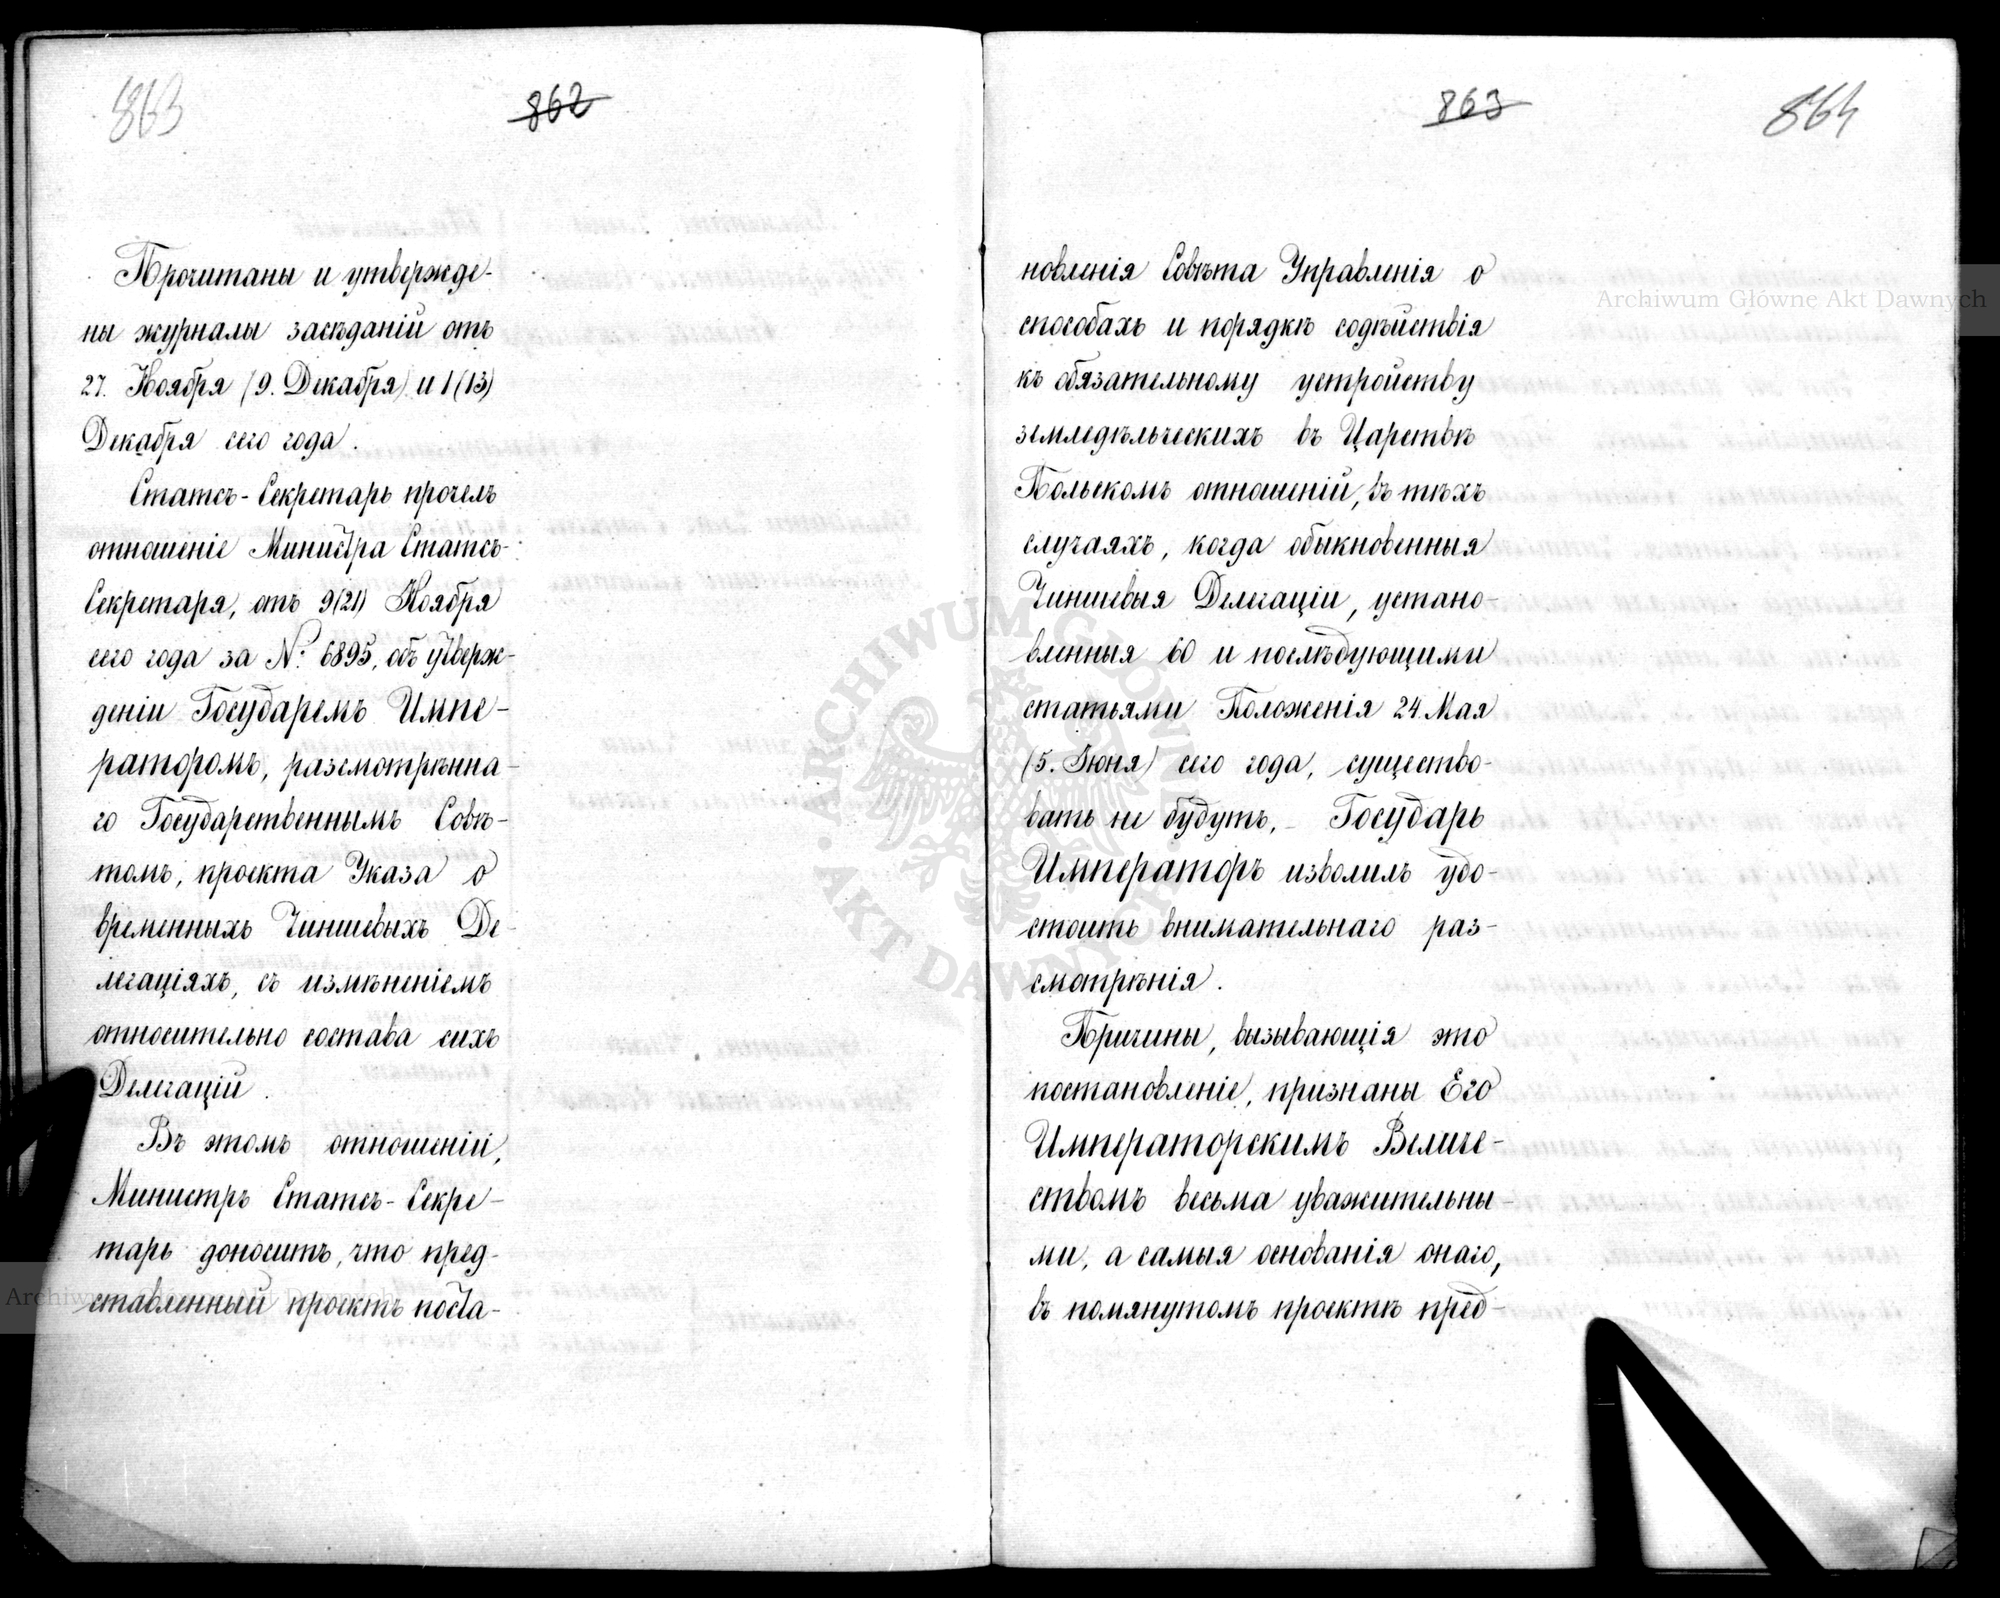 863
862
Прочитаны и утвержде-
ны журналы засѣданій отъ
27. Ноября (9. Декабря) и 1 (13)
Декабря сего года.
Статсъ-Секретарь прочелъ
отношеніе Министра Статсъ-
Секретаря, отъ 9 (21) Ноября
сего года за №: 6895, объ утверж-
деніи Государемъ Импе-
раторомъ, разсмотрѣнна-
го Государственнымъ Совѣ-
томъ, проекта Указа о
временныхъ Чиншевыхъ Де-
легаціяхъ, съ измѣненіемъ
относительно состава сихъ
Делегацій.
Въ этомъ отношеніи,
Министръ Статсъ-Секре-
тарь доноситъ, что пред-
ставленный проектъ поста-
863
864
новленія Совѣта Управленія о
способахъ и порядкѣ содѣйствія
къ обязательному устройству
земледѣльческихъ въ Царствѣ
Польскомъ отношеній, въ тѣхъ
случаяхъ, когда обыкновенныя
Чиншевыя Делегаціи, устано-
вленныя 60 и послѣдующими
статьями Положенія 24 Мая
(5. Іюня) сего года, существо-
вать не будутъ, Государь
Императоръ изволилъ удо-
стоить внимательнаго раз-
смотрѣнія.
Причины, вызывающія это
постановленіе, признаны Его
Императорскимъ Величе-
ствомъ весьма уважительны-
ми, а самыя основанія онаго,
въ помянутомъ проектѣ пред-
Archiwum Główne Akt Dawnych
Archiwum Główne Akt Dawnych
ARCHIWUM GŁÓWNE
AKT DAWNYCH